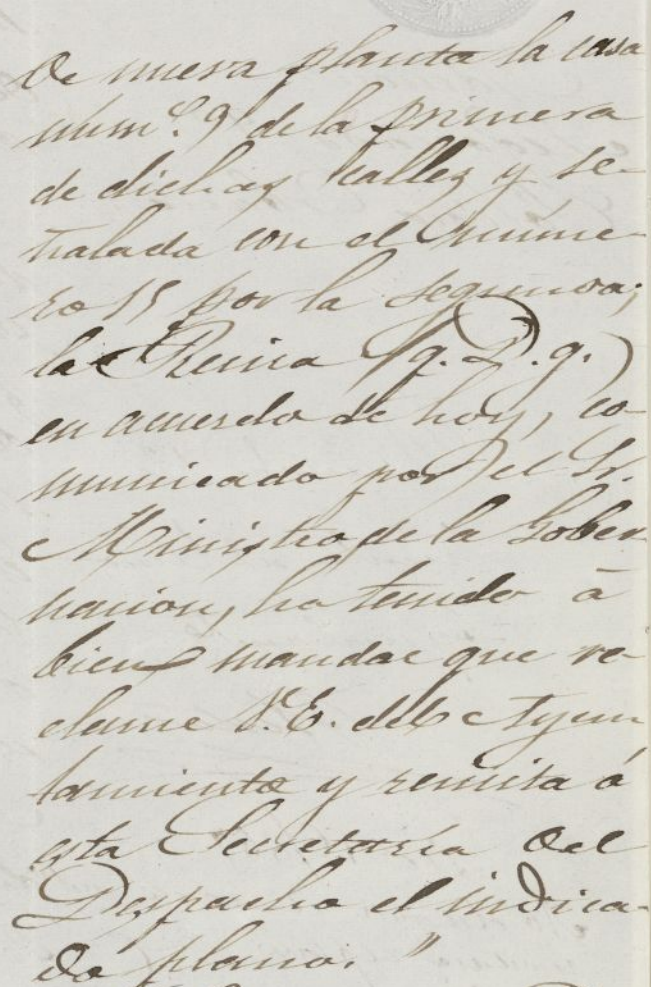 de nueva planta la casa
núm.º 9 de la primera
de dichas calles y se-
ñalada con el núme-
ro 15 por la segunda;
la Reina (q. D. g.)
en acuerdo de hoy, co-
municado por el Sr.
Ministro de la Gober
nacion, ha tenido á
bien mandar que re-
clame V.E. del Ayun
tamiento y remita á
esta Secretaría del
Despacho el indica-
do plano."